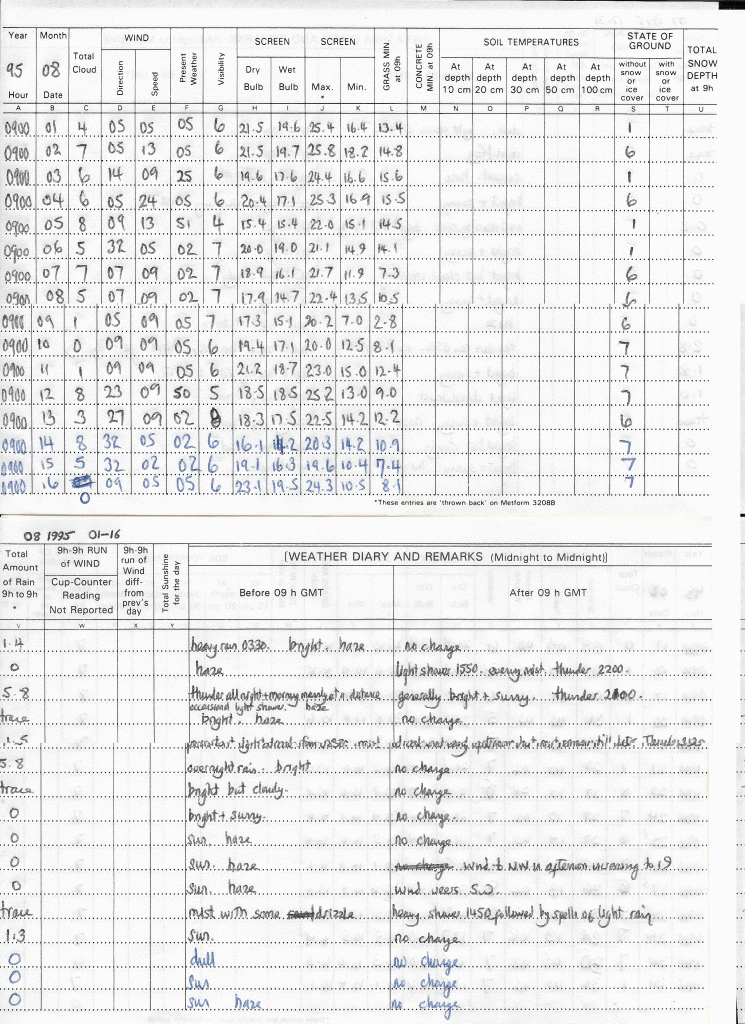 Year Month Total Cloud WIND Present Weather Visibility SCREEN SCREEN GRASS MIN. at 09h CONCRETE MIN. at 09h SOIL TEMPERATURES STATE OF GROUND TOTAL SNOW DEPTH at 9h
95 08 Direction Speed Dry Bulb Wet Bulb Max. * Min. At depth 10 cm At depth 20 cm At depth 30 cm At depth 50 cm At depth 100 cm without snow or ice cover with snow or ice cover
Hour Date
A B C D E F G H I J K L M N O P Q R S T U
0900 01 4 05 05 05 6 21.5 19.6 25.4 16.4 13.4 1
0900 02 7 05 13 05 6 21.5 19.7 25.8 18.2 14.8 6
0900 03 6 14 09 25 6 19.6 17.6 24.4 16.6 15.6 1
0900 04 6 05 24 05 6 20.4 17.1 25.3 16.9 15.5 6
0900 05 8 09 13 51 4 15.4 15.4 22.0 15.1 14.5 1
0900 06 5 32 05 02 7 20.0 19.0 21.1 14.9 14.1 1
0900 07 7 07 09 02 7 18.9 16.1 21.7 11.9 7.3 6
0900 08 5 07 09 02 7 17.9 14.7 22.4 13.5 10.5 6
0900 09 1 05 09 05 7 17.3 15.1 20.2 7.0 2.8 6
0900 10 0 09 09 05 6 19.4 17.1 20.0 12.5 8.1 7
0900 11 1 09 09 05 6 21.2 18.7 23.0 15.0 12.4 7
0900 12 8 23 09 50 5 18.5 18.5 25.2 13.0 9.0 7
0900 13 3 27 09 02 8 18.3 17.5 22.5 14.2 12.2 6
0900 14 8 32 05 02 6 16.1 14.2 20.3 14.2 10.9 7
0900 15 5 32 02 02 6 19.1 16.3 19.6 10.4 7.4 7
0900 16 0 09 05 05 6 23.1 19.5 24.3 10.5 8.1 7
*These entries are 'thrown back' on Metform 3208B
08 1995 01-16
Total Amount of Rain 9h to 9h * 9h-9h RUN of WIND Cup-Counter Reading Not Reported 9h-9h run of Wind diff- from prev's day Total Sunshine for the day [WEATHER DIARY AND REMARKS (Midnight to Midnight)]
Before 09 h GMT After 09 h GMT
V W X Y
1.4 heavy rain 0330. bright. haze no change
0 haze light shower 1550. evening mist. thunder 2200.
5.8 thunder all night + morning mainly at a distance generally bright + sunny. thunder
occasional light shower. haze
trace bright. haze no change.
1.5
5.8 overnight rain. bright no change
trace bright but cloudy. no change
0 bright + sunny. no change.
0 sun haze no change
0 sun. haze no change wind to NW in afternoon increasing to 19
0 sun. haze wind veers S.W.
trace mist with some drizzle heavy shower 1450 followed by spells of light rain
1.3 sun. no change
0 dull no change
0 sun no change
0 sun haze no change